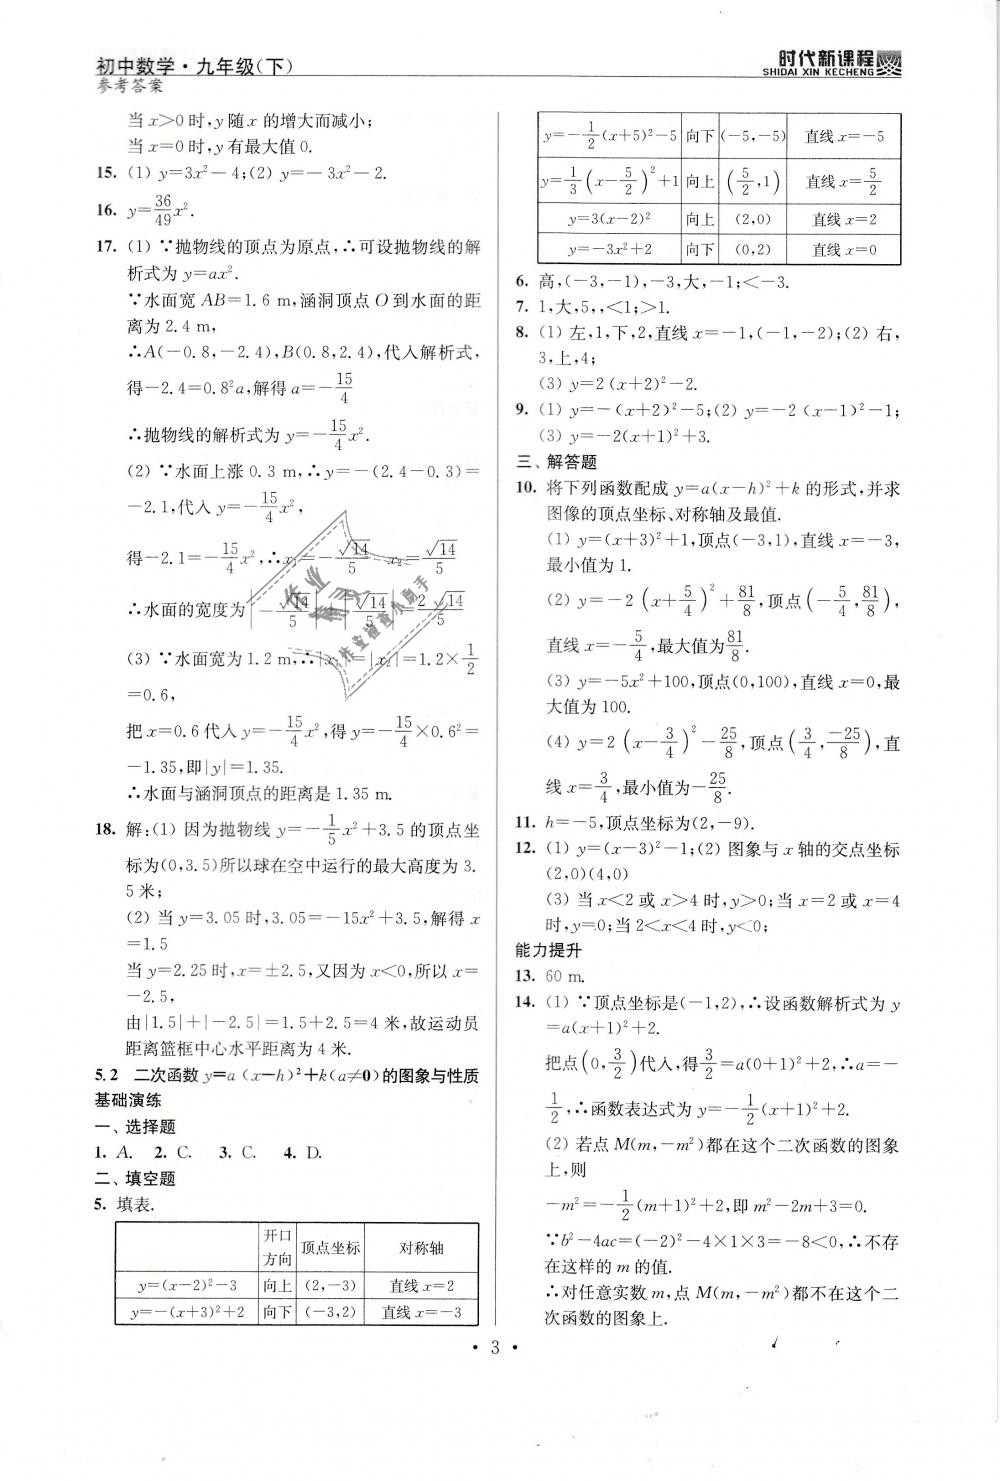 初中数学·九年级(下)
参考答案
时代新课程
SHIDAI XIN KECHENG
当 x>0 时,y 随 x 的增大而减小;
当 x=0 时,y 有最大值 0.
15. (1) y=3x²－4;(2) y=－3x²－2.
16. y=36/49 x².
17. (1) ∵抛物线的顶点为原点,∴可设抛物线的解
析式为 y=ax².
∵水面宽 AB=1.6 m,涵洞顶点 O 到水面的距
离为 2.4 m,
∴A(－0.8,－2.4),B(0.8,2.4),代入解析式,
得－2.4=0.8²a,解得 a=－15/4
∴抛物线的解析式为 y=－15/4 x².
(2) ∵水面上涨 0.3 m,∴y=－(2.4－0.3)=
－2.1,代入 y=－15/4 x²,
得－2.1=－15/4 x²,∴x₁=－√14/5 x₂=√14/5
∴水面的宽度为|－√14/5|+|√14/5|=2√14/5
(3) ∵水面宽为 1.2 m,∴|x₁|=|x₂|=1.2×1/2
=0.6,
把 x=0.6 代入 y=－15/4 x²,得 y=－15/4×0.6²=
－1.35,即|y|=1.35.
∴水面与涵洞顶点的距离是 1.35 m.
18. 解:(1) 因为抛物线 y=－1/5 x²+3.5 的顶点坐
标为(0,3.5)所以球在空中运行的最大高度为 3.
5 米;
(2) 当 y=3.05 时,3.05=－15x²+3.5,解得 x
=1.5
当 y=2.25 时,x=±2.5,又因为 x<0,所以 x=
－2.5,
由|1.5|+|－2.5|=1.5+2.5=4 米,故运动员
距离篮框中心水平距离为 4 米.
5.2 二次函数 y=a (x－h)²+k(a≠0)的图象与性质
基础演练
一、选择题
1. A. 2. C. 3. C. 4. D.
二、填空题
5. 填表.
开口方向 顶点坐标 对称轴
y=(x－2)²－3 向上 (2,－3) 直线 x=2
y=－(x+3)²+2 向下 (－3,2) 直线 x=－3
y=－1/2(x+5)²－5 向下 (－5,－5) 直线 x=－5
y=1/3(x－5/2)²+1 向上 (5/2,1) 直线 x=5/2
y=3(x－2)² 向上 (2,0) 直线 x=2
y=－3x²+2 向下 (0,2) 直线 x=0
6. 高,(－3,－1),－3,大,－1;<－3.
7. 1,大,5,,<1;>1.
8. (1) 左,1,下,2,直线 x=－1,(－1,－2);(2) 右,
3,上,4;
(3) y=2 (x+2)²－2.
9. (1) y=－(x+2)²－5;(2) y=－2 (x－1)²－1;
(3) y=－2(x+1)²+3.
三、解答题
10. 将下列函数配成 y=a(x－h)²+k 的形式,并求
图像的顶点坐标、对称轴及最值.
(1) y=(x+3)²+1,顶点(－3,1),直线 x=－3,
最小值为 1.
(2) y=－2 (x+5/4)²+81/8,顶点(－5/4,81/8),
直线 x=－5/4,最大值为81/8.
(3) y=－5x²+100,顶点(0,100),直线 x=0,最
大值为 100.
(4) y=2 (x－3/4)²－25/8,顶点(3/4,－25/8),直
线 x=3/4,最小值为－25/8.
11. h=－5,顶点坐标为(2,－9).
12. (1) y=(x－3)²－1;(2) 图象与 x 轴的交点坐标
(2,0)(4,0)
(3) 当 x<2 或 x>4 时,y>0;当 x=2 或 x=4
时,y=0;当 2<x<4 时,y<0;
能力提升
13. 60 m.
14. (1) ∵顶点坐标是(－1,2),∴设函数解析式为 y
=a(x+1)²+2.
把点(0,3/2)代入,得3/2=a(0+1)²+2,∴a=－
1/2,∴函数表达式为 y=－1/2(x+1)²+2.
(2) 若点 M(m,－m²)都在这个二次函数的图象
上,则
－m²=－1/2(m+1)²+2,即 m²－2m+3=0.
∵b²－4ac=(－2)²－4×1×3=－8<0,∴不存
在这样的 m 的值.
∴对任意实数 m,点 M(m,－m²)都不在这个二
次函数的图象上.
· 3 ·